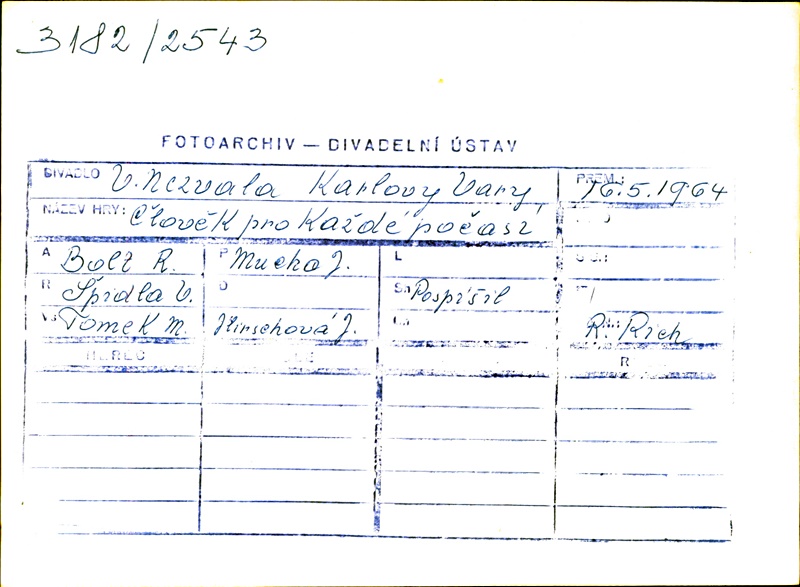 3182/2543
FOTOARCHIV — DIVADELNÍ ÚSTAV
DIVADLO V. Nezvala Karlovy Vary, PREM.: 16.5.1964
NÁZEV HRY: Člověk pro každé počasí
A Bolt R. P Mucha J. L
R Špidla V. O Sa Pospíšil
Vs Tomek M. Hirschová J. R. Rich
HEREC R